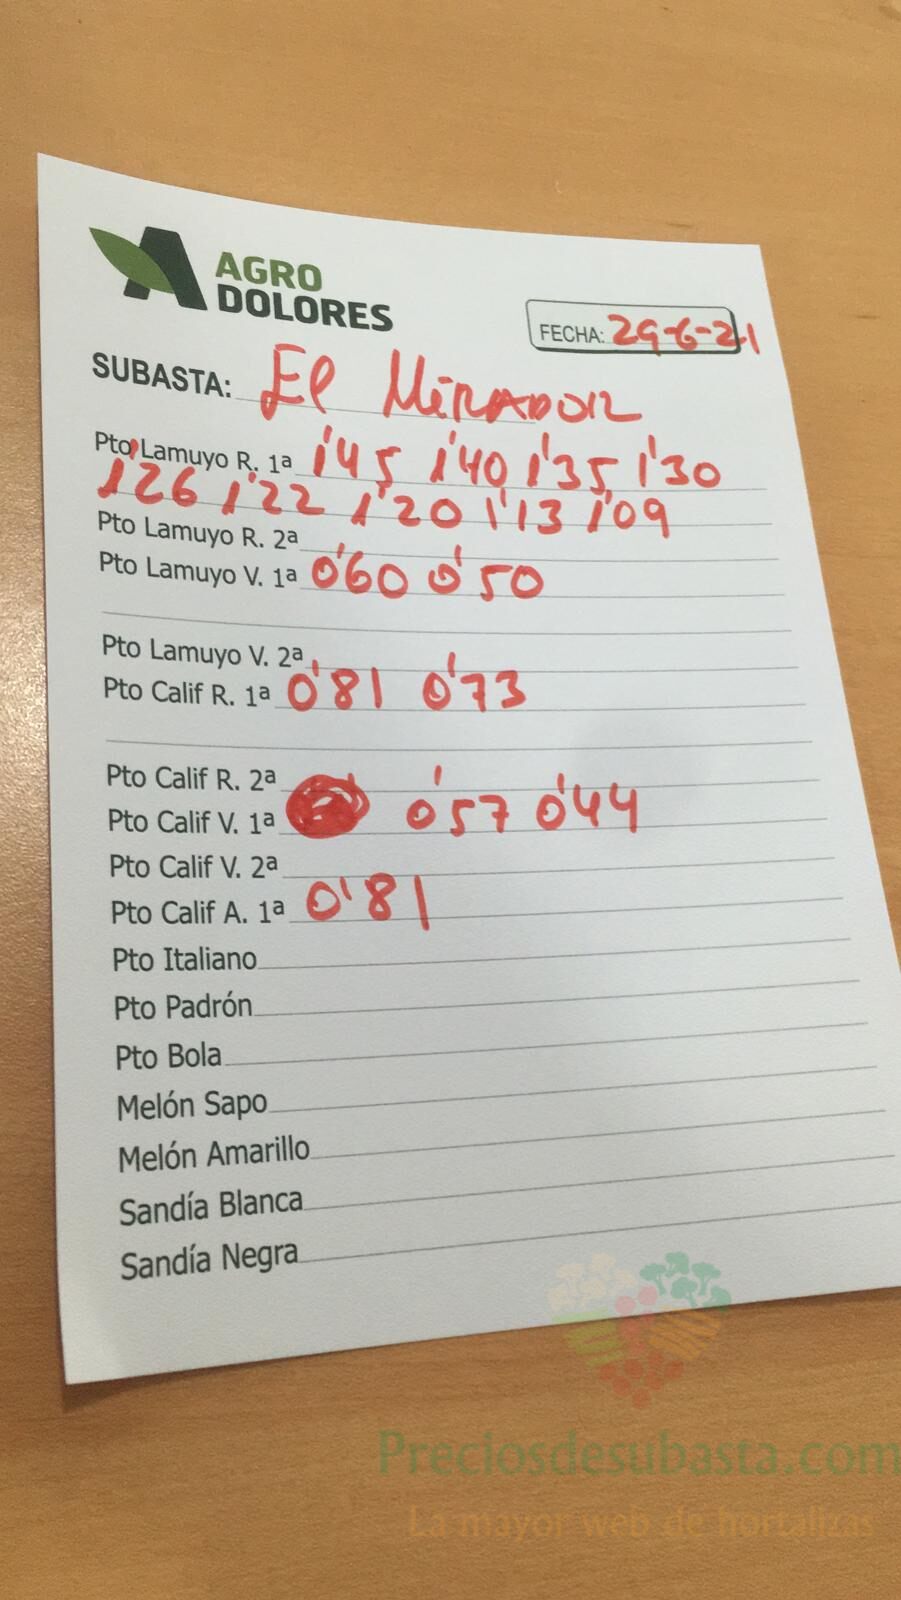 AGRO
DOLORES
FECHA: 29-6-21
SUBASTA: El MiRADOR
Pto Lamuyo R. 1ª 1'45 1'40 1'35 1'30
1'26 1'22 1'20 1'13 1'09
Pto Lamuyo R. 2ª
Pto Lamuyo V. 1ª 0'60 0'50
Pto Lamuyo V. 2ª
Pto Calif R. 1ª 0'81 0'73
Pto Calif R. 2ª
Pto Calif V. 1ª 0'57 0'44
Pto Calif V. 2ª
Pto Calif A. 1ª 0'81
Pto Italiano
Pto Padrón
Pto Bola
Melón Sapo
Melón Amarillo
Sandía Blanca
Sandía Negra
Preciosdesubasta.com
La mayor web de hortalizas